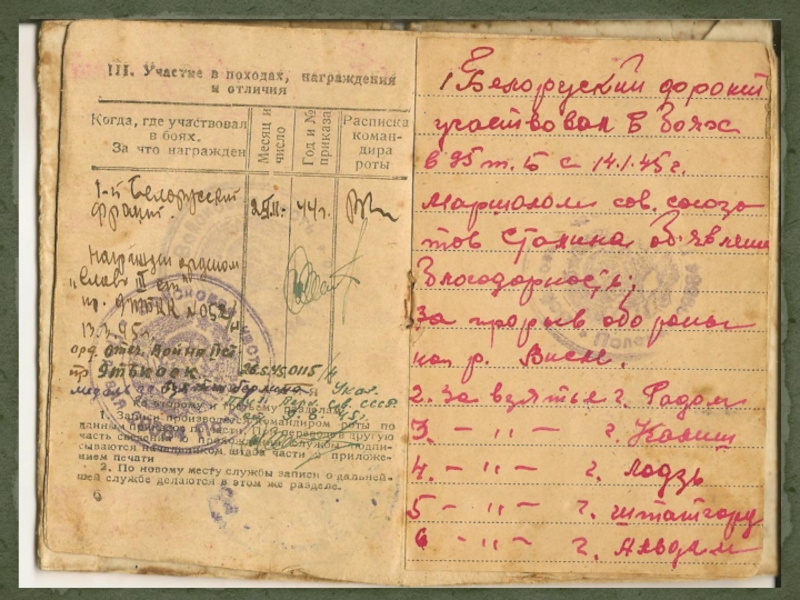 III. Участие в походах, награждения
и отличия
Когда, где участвовал
в боях.
За что награжден
Месяц и
число
Год и №
приказа
Расписка
коман-
дира
роты
1-й Белорусский
фронт.
44г.
Награжден орденом
"Слава III ст"
пр. 9 ГТБК № 052/н
орд. отеч. Война
26.5.45 0115/н
медаль за взятие Берлина Указ.
През. Верх. Сов. СССР
Ко второму и третьему разделам
1. Записи производятся командиром роты по
данным приказов по части. При переводе в другую
часть сведения о прохождении службы подпи-
сываются начальником штаба части с приложе-
нием печати
2. По новому месту службы записи о дальней-
шей службе делаются в этом же разделе.
6
1 Белоруский фронт
участвовал в боях
в 95 т. б с 14.1.45г.
Маршалом сов. союза
тов Сталина объявлена
Благодарность;
За прорыв обороны
на р. Висле.
2. за взятье г. Радом
3. – " – г. Калиш
4. – " – г. Лодзь
5 – " – г. Штатгорд
6 – " – г.